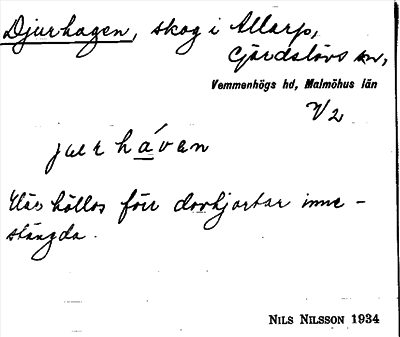 Djurhagen, skog i Allarp,
Gärdslövs sn,
Vemmenhögs hd, Malmöhus län
V2
jurháven
Här höllos förr dovhjortar inne-
stängda.
NILS NILSSON 1934